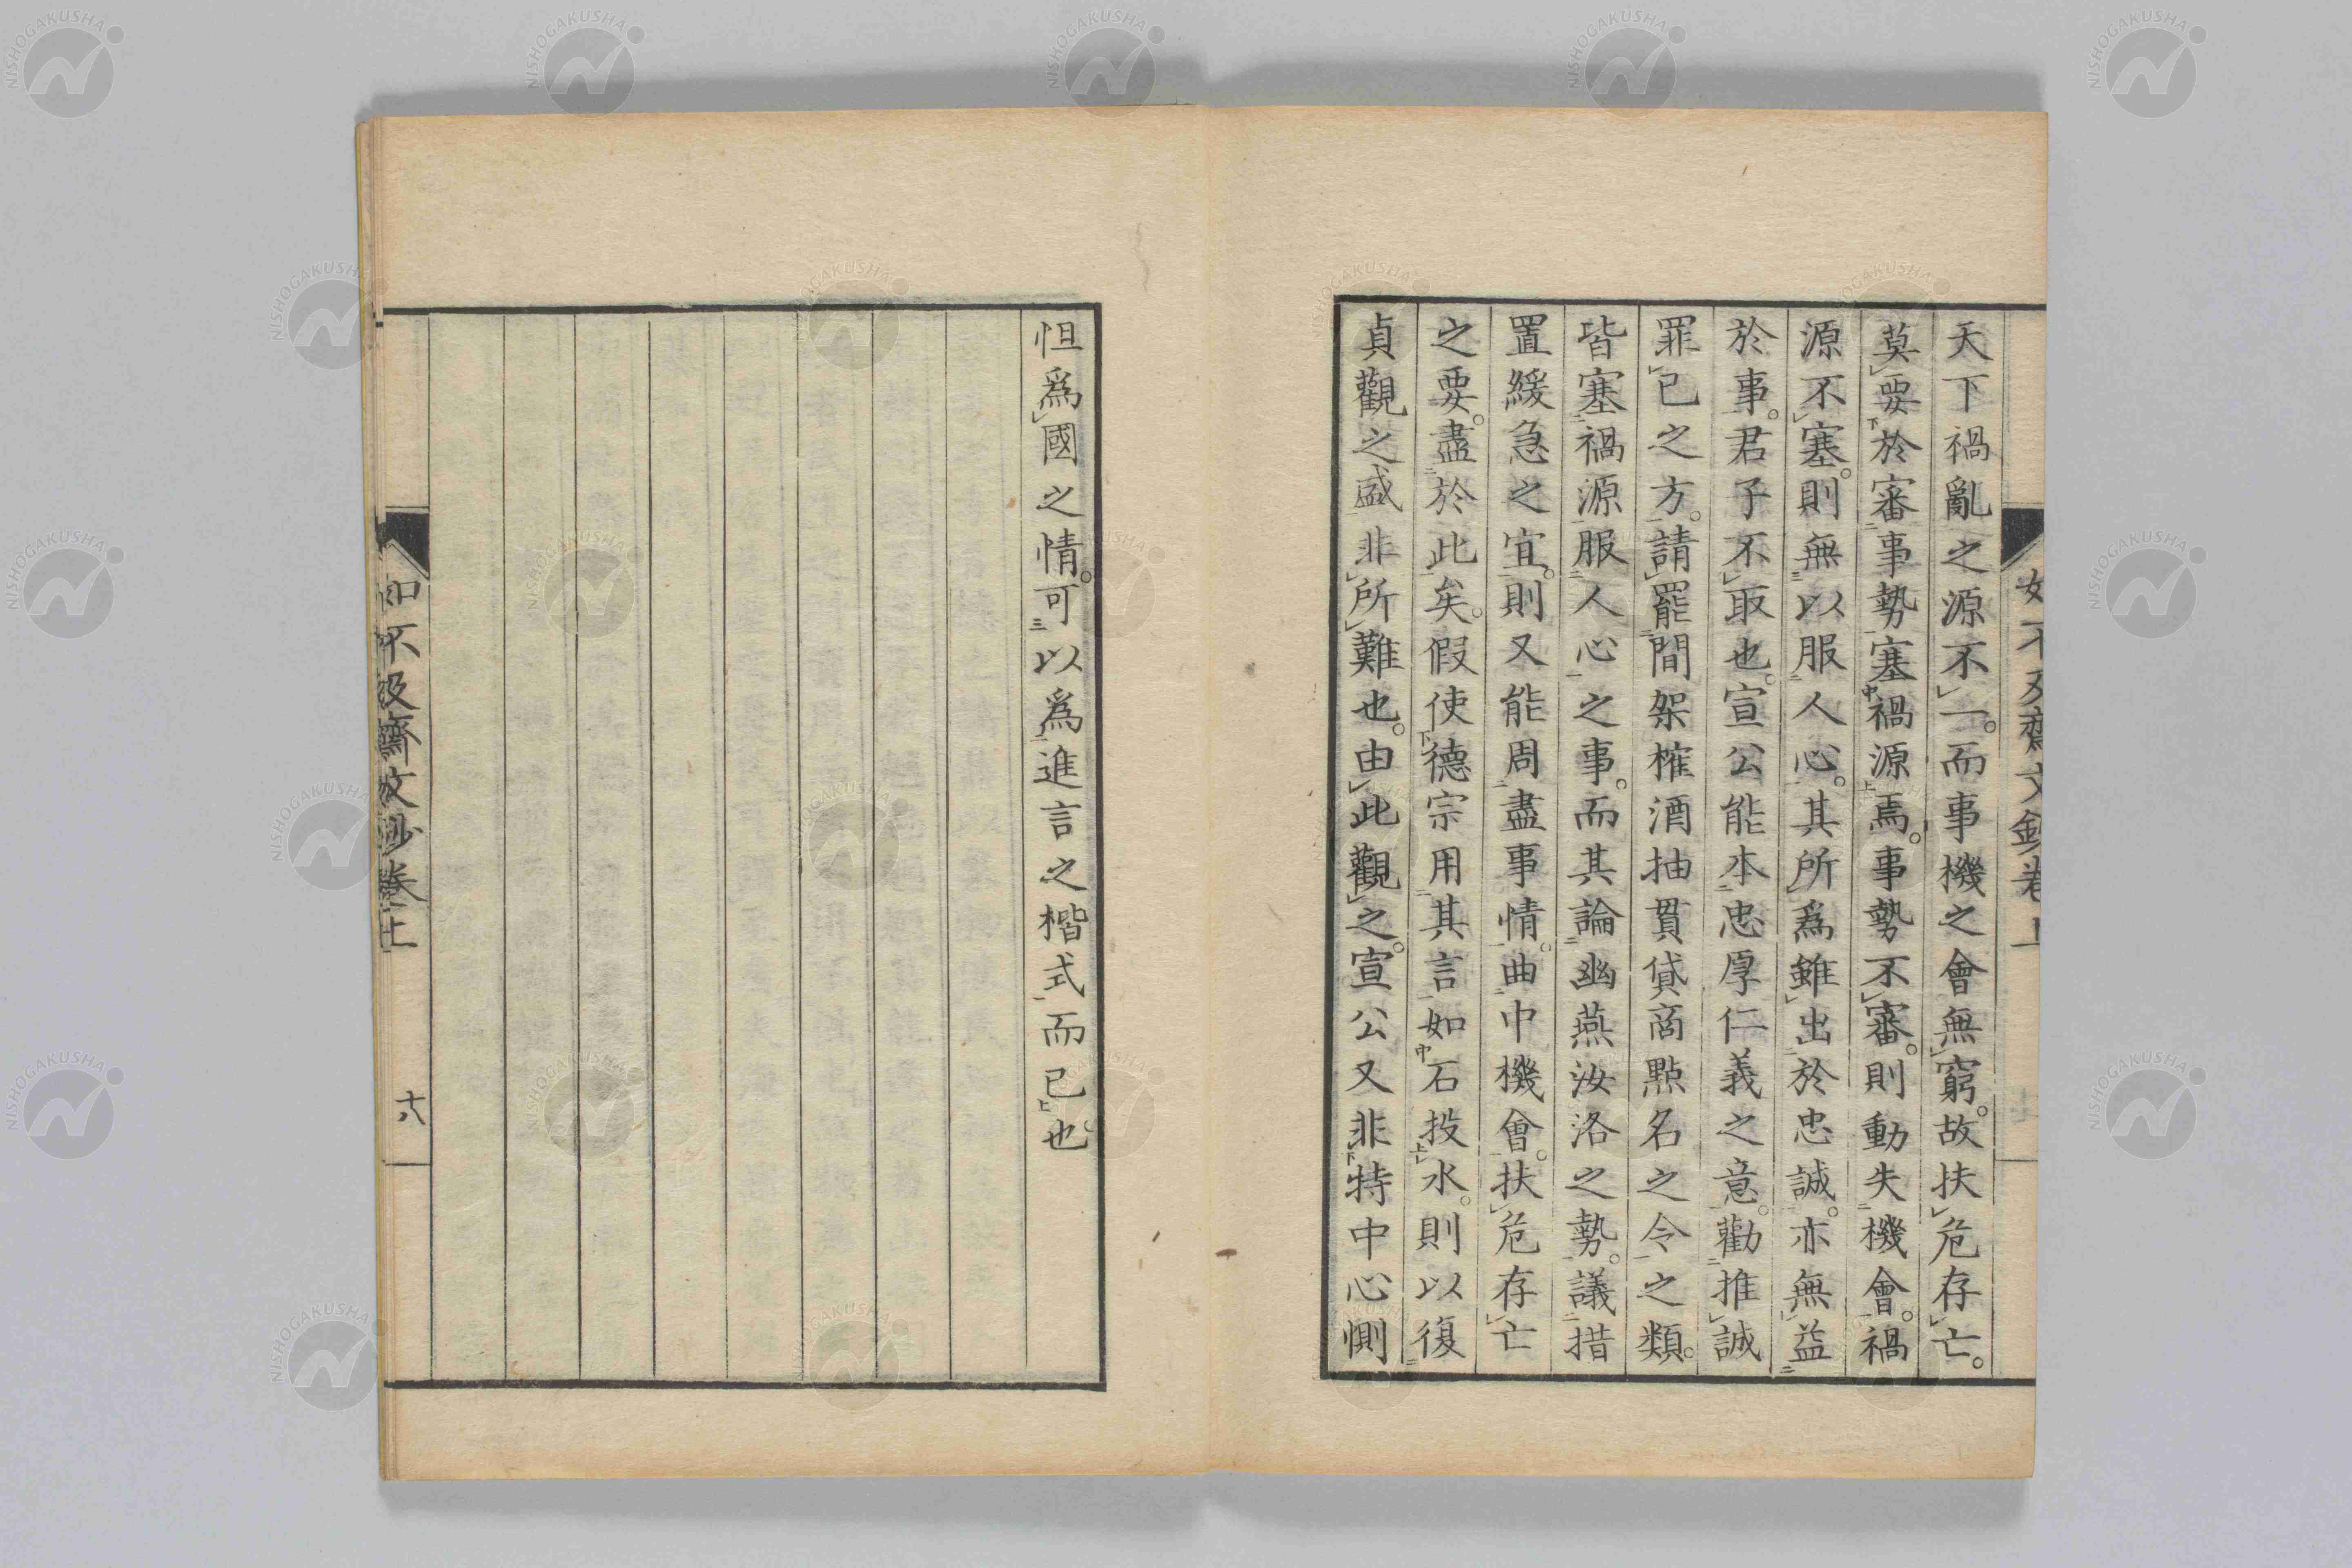 天下禍亂之源不一。而事機之會無窮。故扶危存亡。
莫要於審事勢塞禍源焉。事勢不審。則動失機會。禍
源不塞。則無以服人心。其所爲雖出於忠誠。亦無益
於事。君子不取也。宣公能本忠厚仁義之意。勸推誠
罪已之方。請罷間架榷酒抽貫貸商點名之令之類。
皆塞禍源服人心之事。而其論幽燕汝洛之勢。議措
置緩急之宜。則又能周盡事情。曲中機會。扶危存亡
之要。盡於此矣。假使德宗用其言如石投水。則以復
貞觀之盛非所難也。由此觀之。宣公又非特中心惻
怛爲國之情。可以爲進言之楷式而已也
如不及齋文鈔卷上
如不及齋文鈔卷上
十八
NISHOGAKUSHA